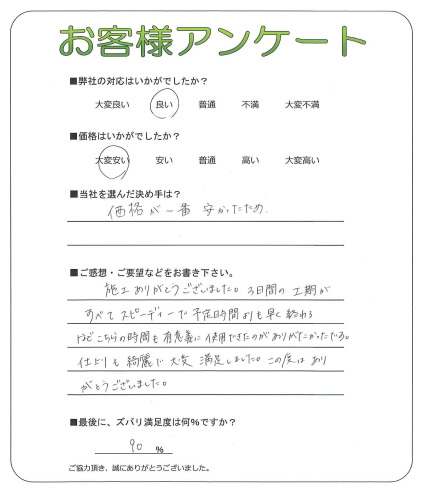 お客様アンケート
■弊社の対応はいかがでしたか？
大変良い 良い 普通 不満 大変不満
■価格はいかがでしたか？
大変安い 安い 普通 高い 大変高い
■当社を選んだ決め手は？
価格が一番安かったため.
■ご感想・ご要望などをお書き下さい。
施工ありがとうございました。3日間の工期が
すべてスピーディーで予定時間よりも早く終わる
ほどこちらの時間も有意義に使用できたのがありがたかったです。
仕上りも綺麗で大変満足しました。この度はあり
がとうございました。
■最後に、ズバリ満足度は何%ですか？
90 %
ご協力頂き、誠にありがとうございました。